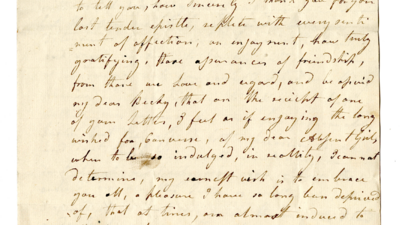 to tell you, how sincerely I thank you for your
last tender epistle, replete with every senti
ment of affection, an enjoyment, how truly
gratifying, these assurances of friendship,
from those we love and regard, and be assured
my dear Becky, that on the reciept of one
of your letters, I feel as if enjoying the long
wished for, Converse, of my dear Absent Girls
when to be so indulged, in reallity, I cannot
determine, my earnest wish is to embrace
you all, a pleasure I have so long been deprived
of, that at times, am almost induced to